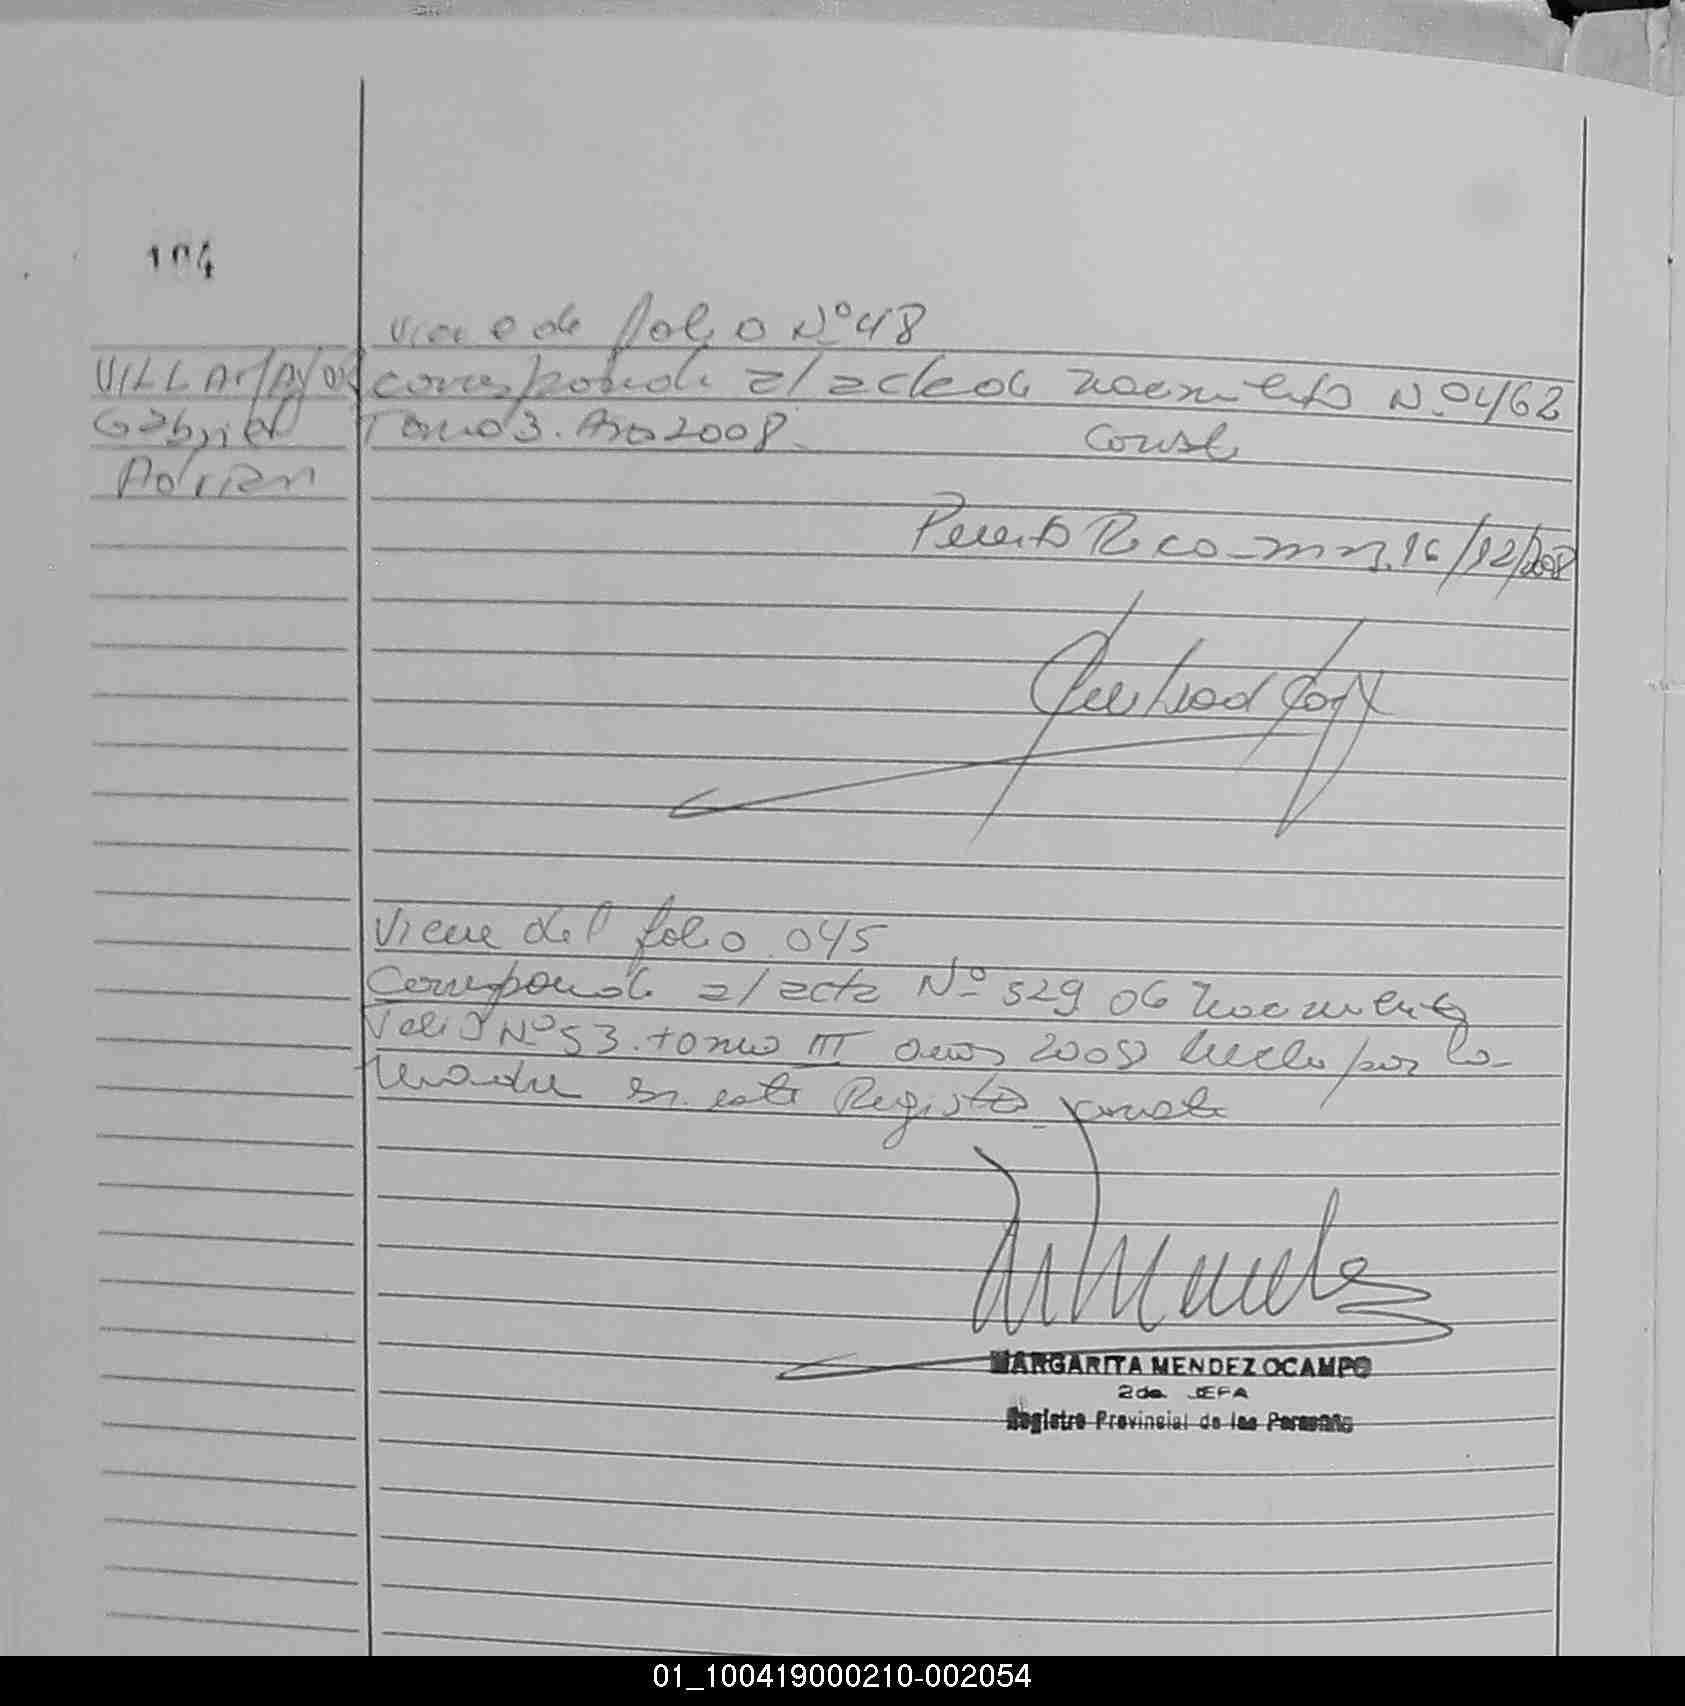 104
Viene de folio Nº 48
VILLA
corresponde a/ acta de nacimiento Nº 0462
Gabriel
Tomo 3. Año 2008. Conste
Adrian
Puerto Rico - mnes, 16/12/2008
Viene del folio 045
Corresponde a/ acta Nº 529 de nacimiento
folio Nº 53. tomo III 2005 hecho por la
madre en este Registro conste
MARGARITA MENDEZ OCAMPO
2da. JEFA
Registro Provincial de las Personas
01_100419000210-002054